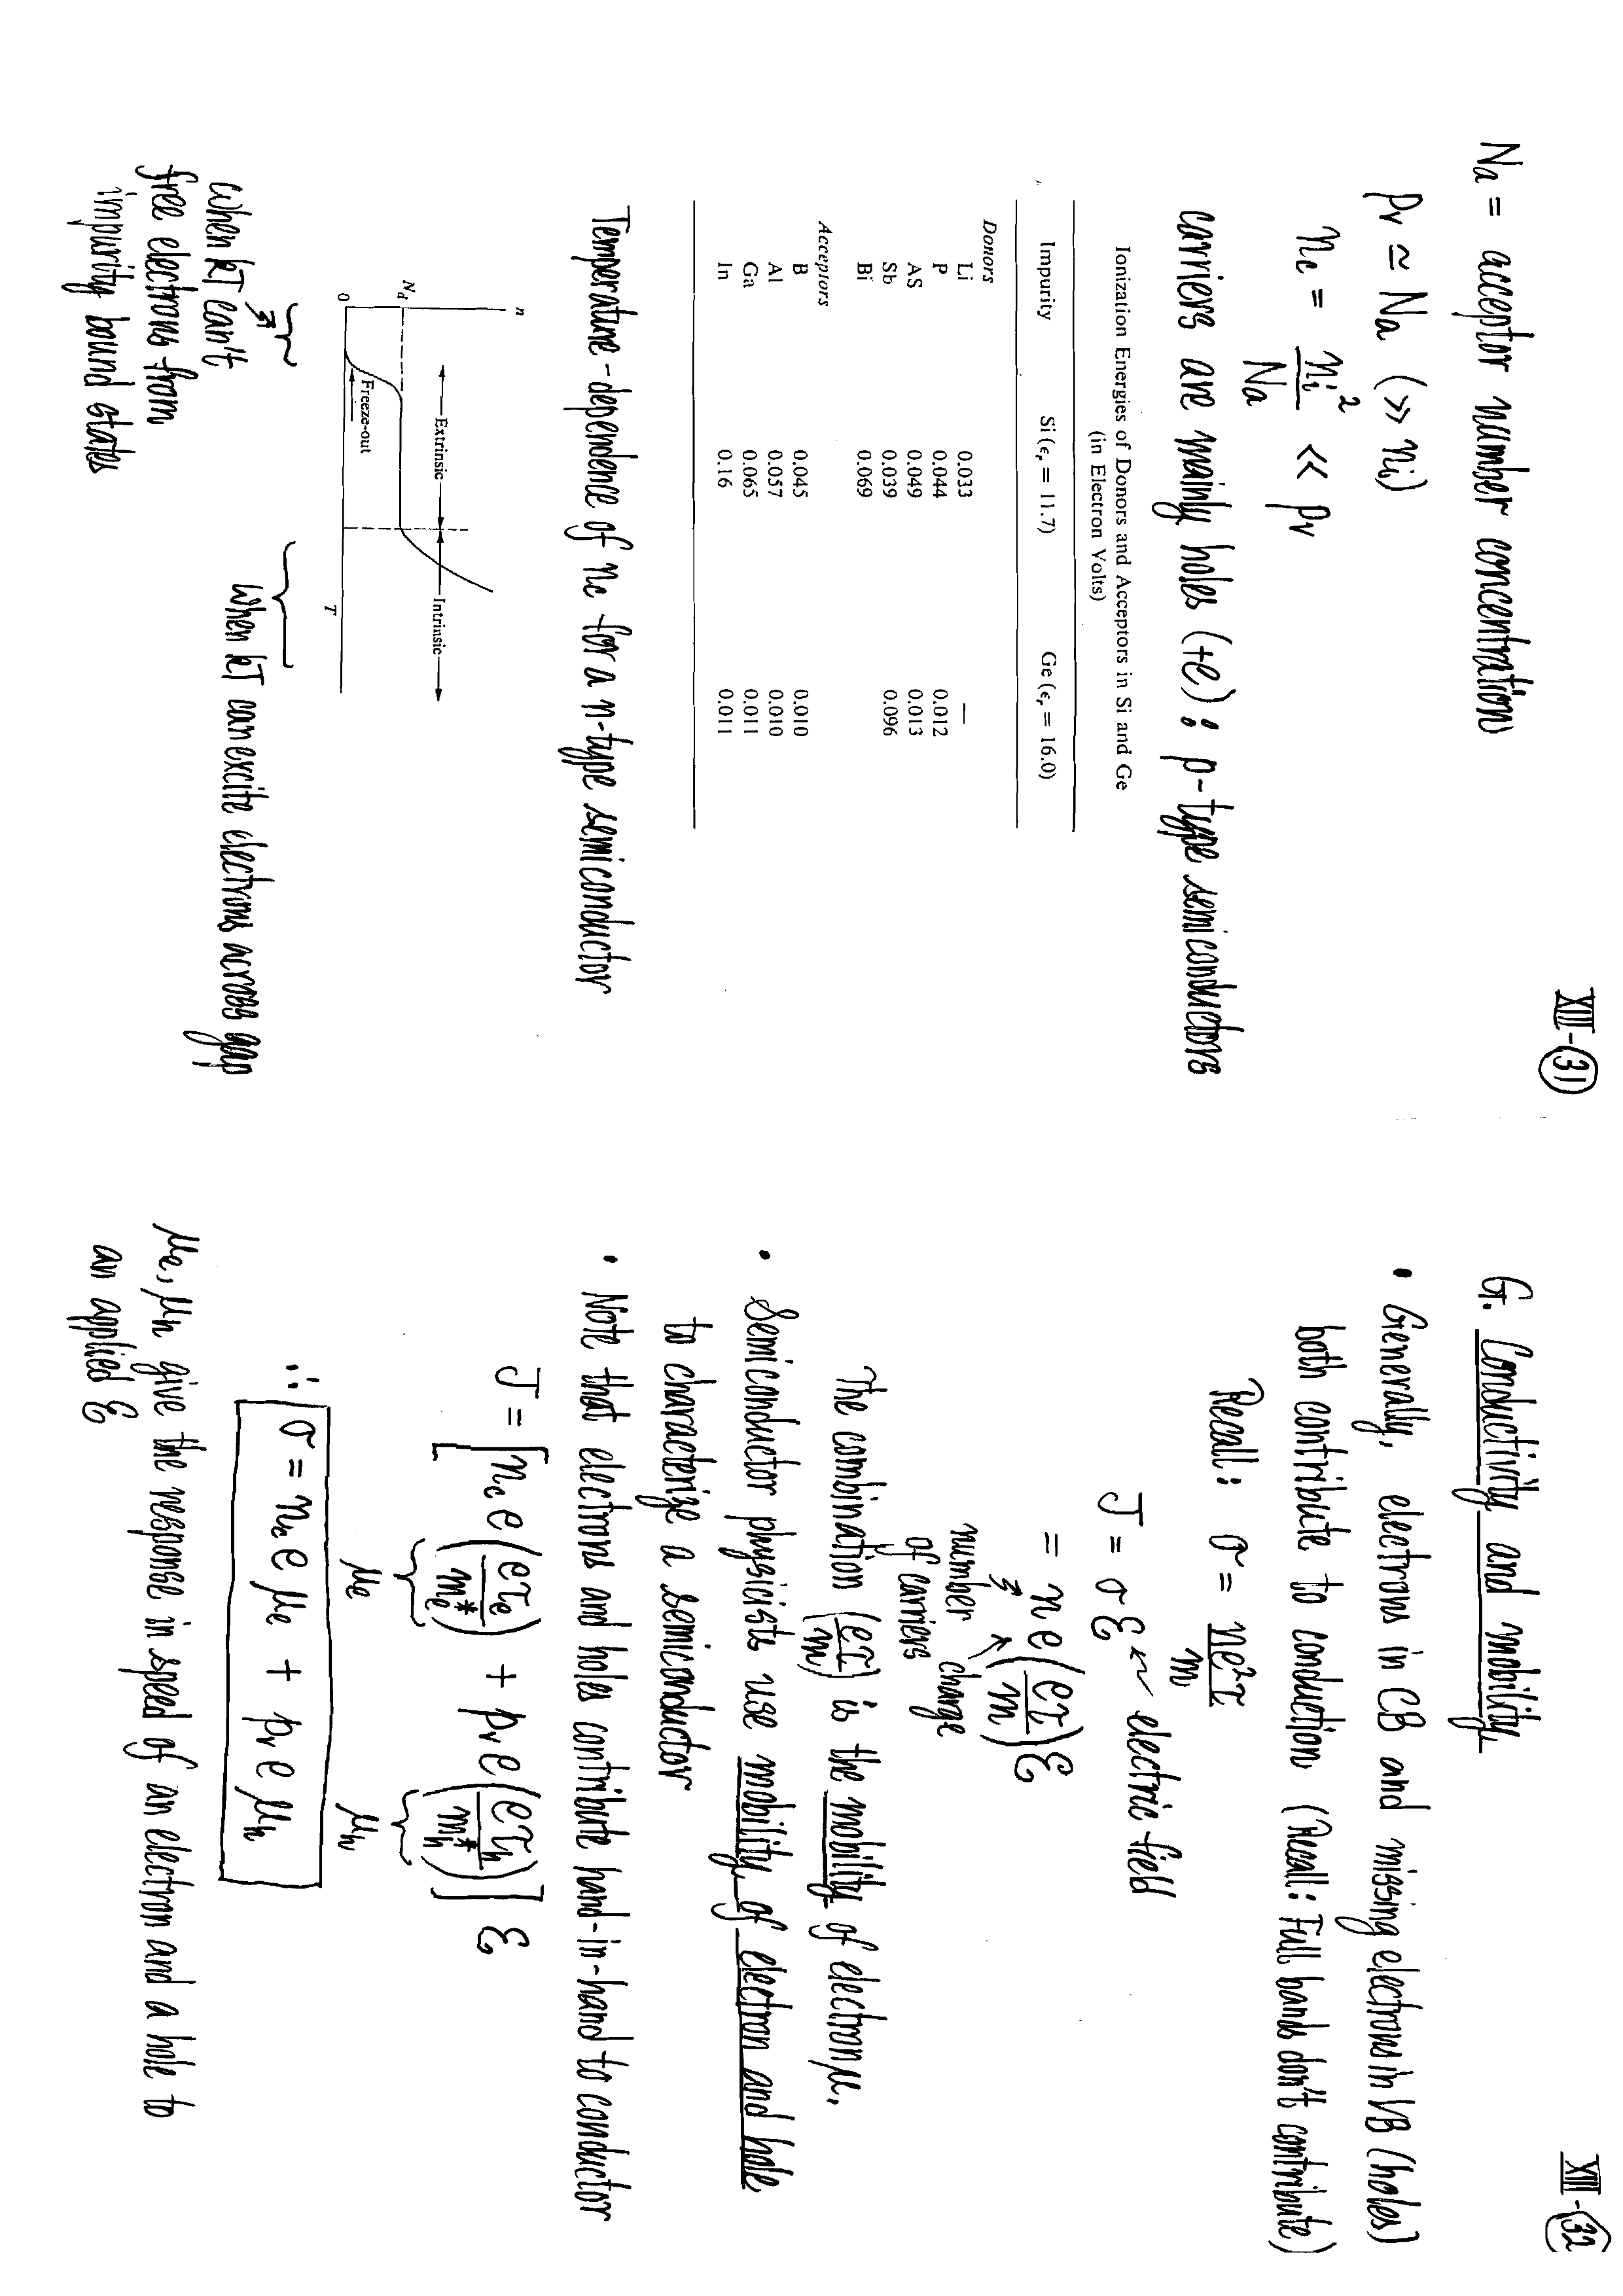 XII-(31)
Na = acceptor number concentration
pv ≃ Na (>> ni)
nc = ni²/Na << pv
carriers are mainly holes (+e) : p-type semiconductors
Ionization Energies of Donors and Acceptors in Si and Ge
(in Electron Volts)
Impurity Si (εr = 11.7) Ge (εr = 16.0)
Donors
Li 0.033 —
P 0.044 0.012
AS 0.049 0.013
Sb 0.039 0.096
Bi 0.069
Acceptors
B 0.045 0.010
Al 0.057 0.010
Ga 0.065 0.011
In 0.16 0.011
Temperature-dependence of nc for a n-type semiconductor
n
Extrinsic Intrinsic
Nd
Freeze-out
0
T
when kT can't
free electrons from
impurity bound states
when kT can excite electrons across gap
XII-(32)
G. Conductivity and mobility
• Generally, electrons in CB and missing electrons in VB (holes)
both contribute to conduction (Recall: Full bands don't contribute)
Recall: σ = ne²τ/m
J = σ ℰ electric field
= n e (eτ/m) ℰ
number of carriers
charge
The combination (eτ/m) is the mobility of electron μ.
• Semiconductor physicists use mobility of electron and hole
to characterize a semiconductor
• Note that electrons and holes contribute hand-in-hand to conductor
J = [nc e (eτe/me*) + pv e (eτh/mh*)] ℰ
μe μh
∴ σ = nc e μe + pv e μh
μe, μh give the response in speed of an electron and a hole to
an applied ℰ